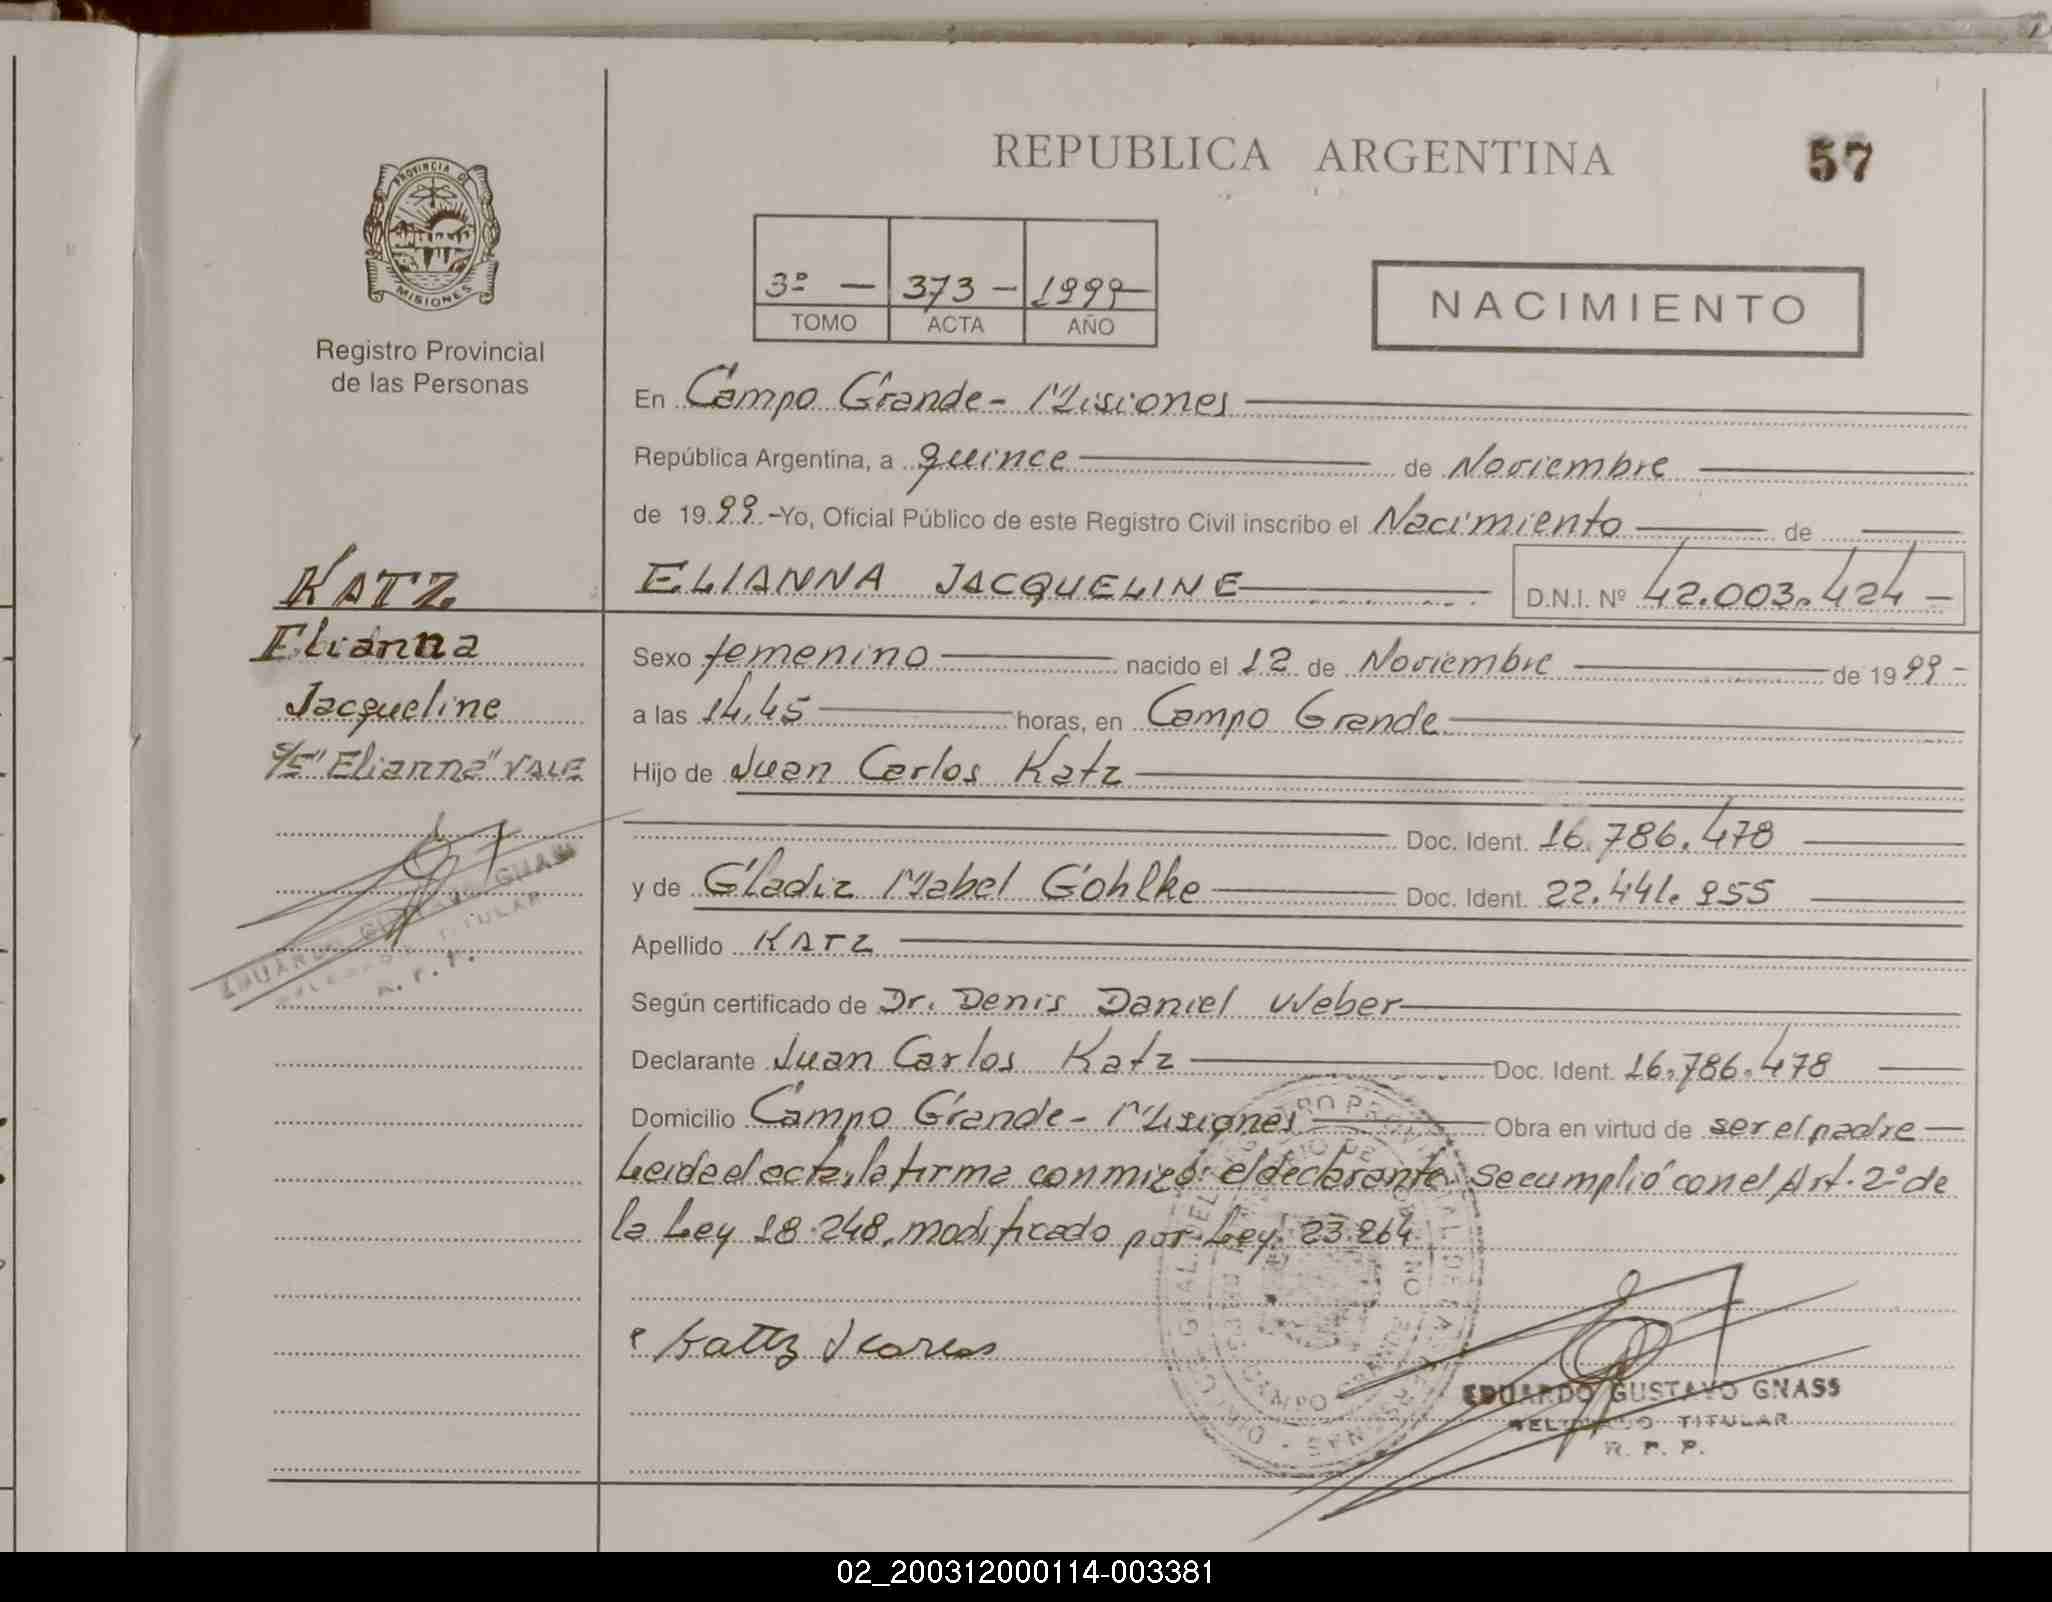 REPUBLICA ARGENTINA
57
PROVINCIA DE
MISIONES
Registro Provincial
de las Personas
3º — 373 — 1999
TOMO ACTA AÑO
NACIMIENTO
En Campo Grande - Misiones
República Argentina, a quince de Noviembre
de 1999 - Yo, Oficial Público de este Registro Civil inscribo el Nacimiento de
ELIANNA JACQUELINE D.N.I. Nº 42.003.424 -
KATZ
Elianna
Jacqueline
S/E "Elianna" VALE
EDUARDO GUSTAVO GNASS
TITULAR
R. P. P.
Sexo femenino nacido el 12 de Noviembre de 1999 -
a las 14,45 horas, en Campo Grande
Hijo de Juan Carlos Katz
Doc. Ident. 16.786.478
y de Gladiz Mabel Gohlke Doc. Ident. 22.441.955
Apellido KATZ
Según certificado de Dr. Denis Daniel Weber
Declarante Juan Carlos Katz Doc. Ident. 16.786.478
Domicilio Campo Grande - Misiones Obra en virtud de ser el padre
Leida el acta, la firma conmigo el declarante. Se cumplió con el Art. 2º de
la Ley 18.248, modificado por Ley 23.264.
Kattz J Carlos
EDUARDO GUSTAVO GNASS
DELEGADO TITULAR
R. P. P.
02_200312000114-003381